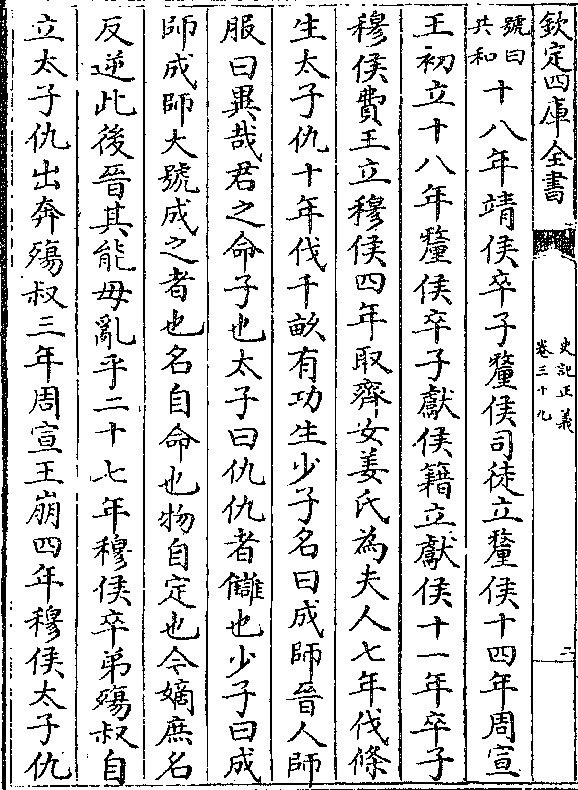 欽定四庫全書
史記正義
卷三十九
二
號曰
共和
十八年靖侯卒子釐侯司徒立釐侯十四年周宣
王初立十八年釐侯卒子獻侯籍立獻侯十一年卒子
穆侯費王立穆侯四年取齊女姜氏為夫人七年伐條
生太子仇十年伐千畝有功生少子名曰成師晉人師
服曰異哉君之命子也太子曰仇仇者讎也少子曰成
師成師大號成之者也名自命也物自定也令嫡庶名
反逆此後晉其能毋亂乎二十七年穆侯卒弟殤叔自
立太子仇出奔殤叔三年周宣王崩四年穆侯太子仇